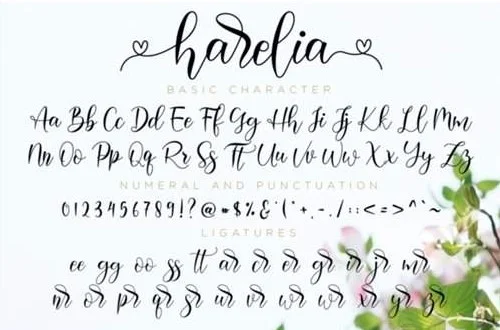 harelia
BASIC CHARACTER
Aa Bb Cc Dd Ee Ff Gg Hh Ii Jj Kk Ll Mm
Nn Oo Pp Qq Rr Ss Tt Uu Vv Ww Xx Yy Zz
NUMERAL AND PUNCTUATION
0123456789!?@*$%&'(+,-./:;<=>^`~
LIGATURES
ee gg oo ss tt ar cr er gr ir jr mr
nr or pr qr sr ur vr wr wr xr yr zr